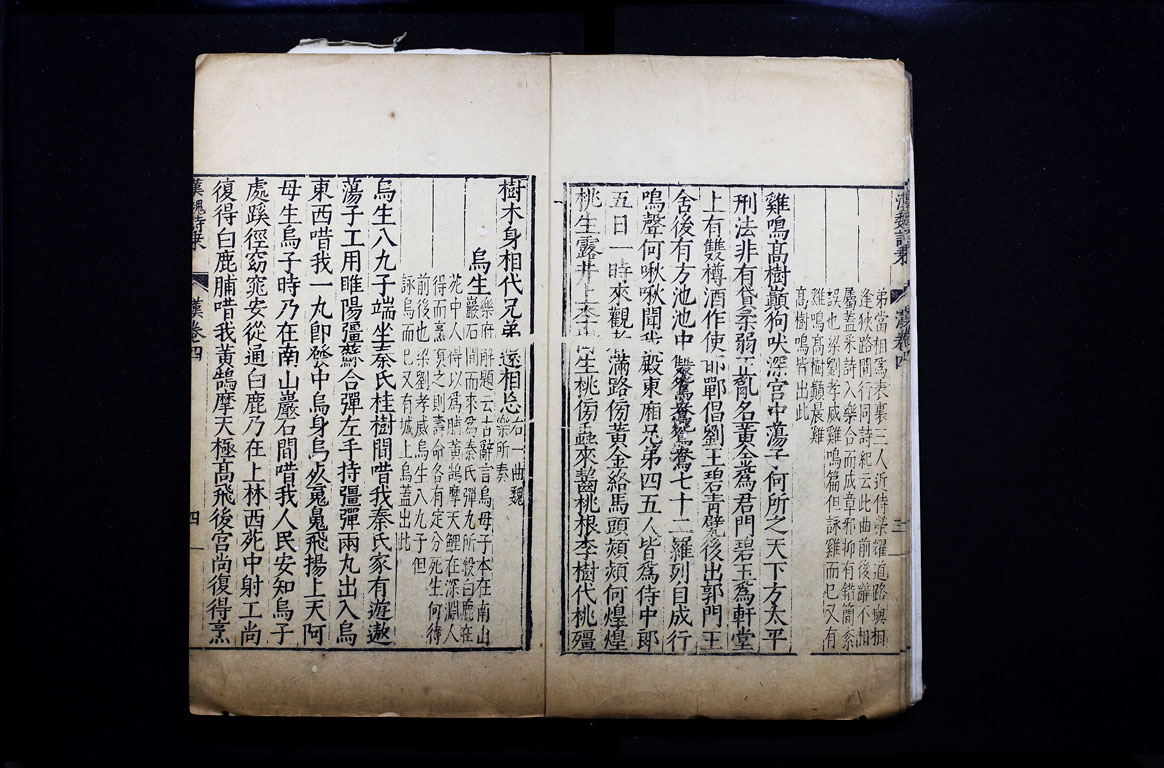 漢魏詩乘
漢卷四
三
弟當相爲表裏三人近侍榮耀道路與相
逢狹路間行同詩紀云此曲前後辭不相
屬蓋采詩入樂合而成章邪抑有錯簡紊
誤也梁劉孝威雞鳴篇但詠雞而已又有
雞鳴高樹巔晨雞
高樹鳴皆出此
雞鳴高樹巔狗吠深宮中蕩子何所之天下方太平
刑法非有貸柔弱正亂名黃金爲君門碧玉爲軒堂
上有雙樽酒作使邯鄲倡劉王碧青甓後出郭門王
舍後有方池池中雙鴛鴦鴛鴦七十二羅列自成行
鳴聲何啾啾聞我殿東廂兄弟四五人皆爲侍中郎
五日一時來觀者滿路傍黃金絡馬頭熲熲何煌煌
桃生露井上李樹生桃傍蟲來齧桃根李樹代桃殭
樹木身相代兄弟還相忘
右一曲魏
樂所奏
烏生
樂府解題云古辭言烏母子本在南山
巖石間而來爲秦氏彈丸所殺白鹿在
苑中人得以爲脯黃鵠摩天鯉在深淵人
得而烹煮之則壽命各有定分死生何待
前後也梁劉孝威烏生八九子但
詠烏而已又有城上烏蓋出此
烏生八九子端坐秦氏桂樹間唶我秦氏家有遊遨
蕩子工用睢陽彊蘇合彈左手持彊彈兩丸出入烏
東西唶我一丸即發中烏身烏死魂魄飛揚上天阿
母生烏子時乃在南山巖石間唶我人民安知烏子
處蹊徑窈窕安從通白鹿乃在上林西苑中射工尚
復得白鹿脯唶我黃鵠摩天極高飛後宮尚復得烹
漢魏詩乘
漢卷四
四